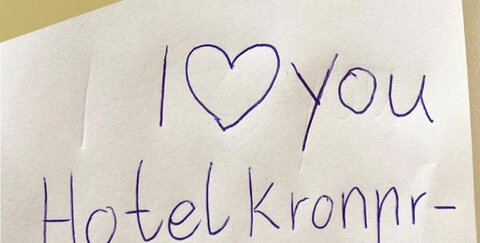 I ♡ you
Hotel Kronpr-